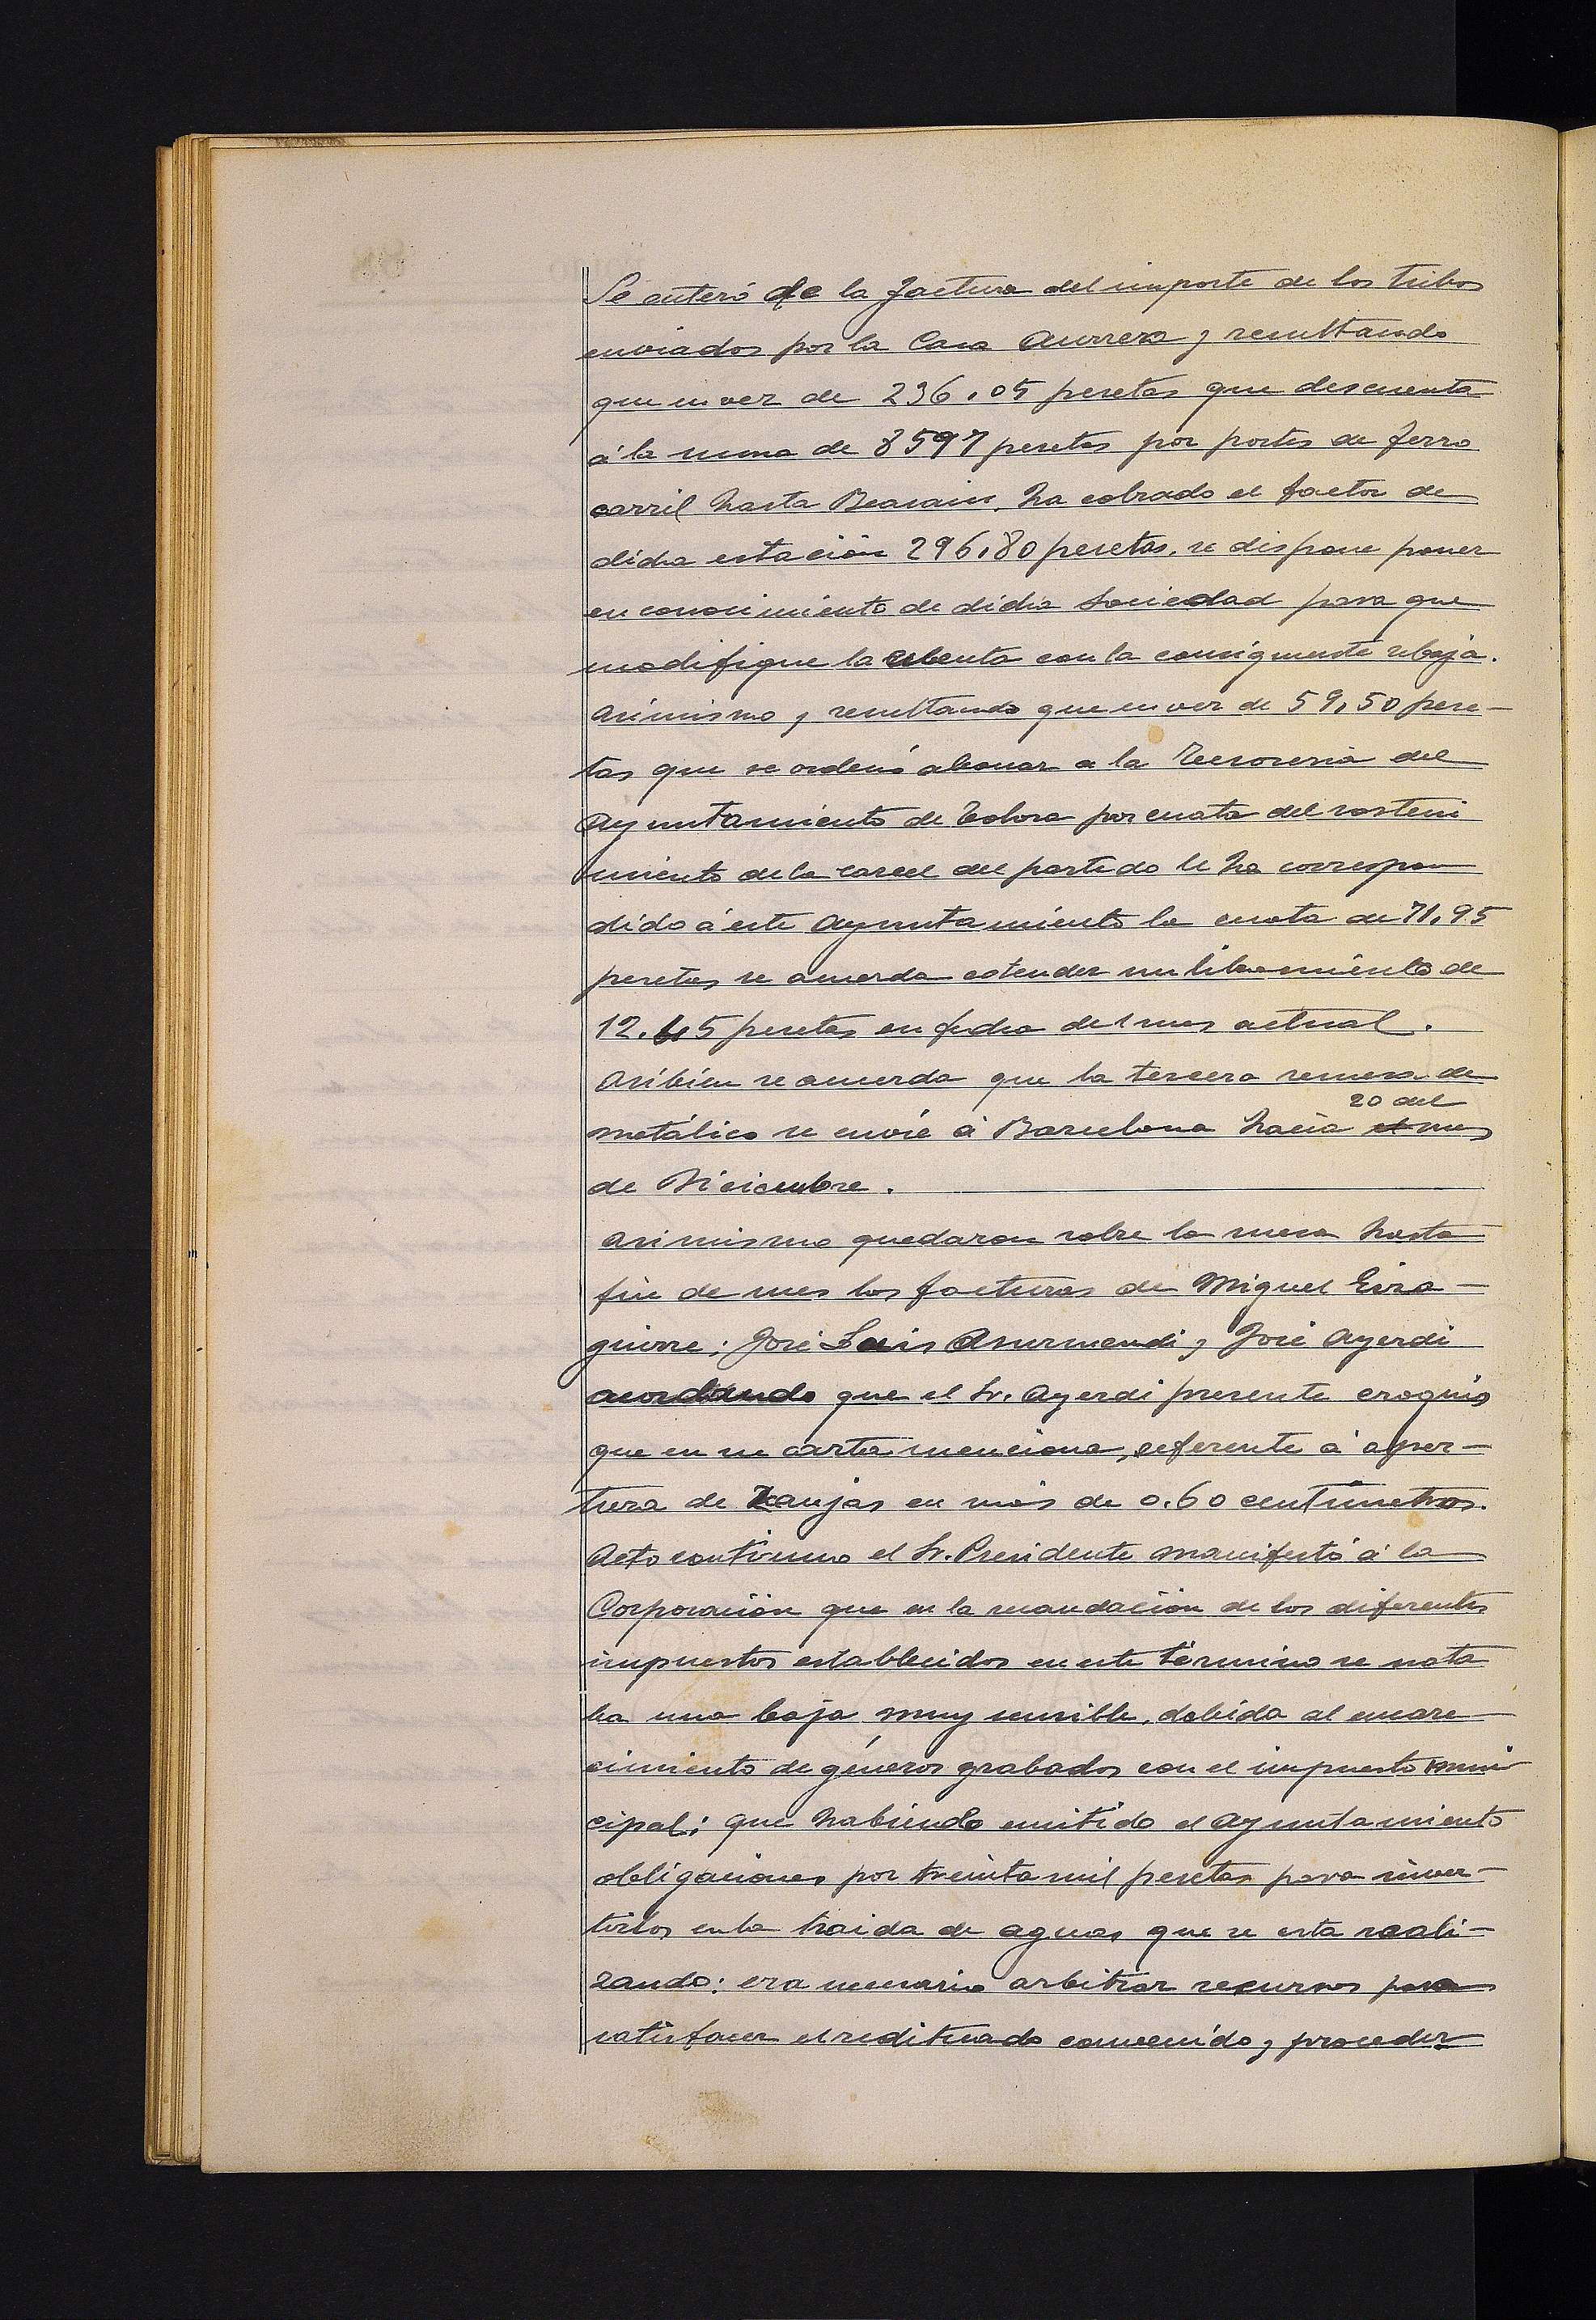 Se enteró de la factura del importe de los tubos
enviados por la Casa Aurrera y resultando
que en vez de 236,05 pesetas que descuenta
á la suma de 8597 pesetas por portes de ferro
carril hasta Beasain, ha cobrado el factor de
dicha estación 296,80 pesetas, se dispone poner
en conocimiento de dicha Sociedad para que
modifique la cuenta con la consiguiente rebaja.
Asimismo y resultando que en vez de 59,50 pese-
tas que se ordenó abonar a la Tesoreria del
Ayuntamiento de Tolosa por cuota del sosteni
miento de la carcel del partido le ha correspon
dido á este Ayuntamiento la cuota de 71,95
pesetas se acuerda estender un libramiento de
12,45 pesetas en fecha del mes actual.
Asibien se acuerda que la tercera remesa de
20 del
metálico se envie á Barcelona hacia el mes
de Diciembre.
Asimismo quedaron sobre la mesa hasta
fin de mes las facturas de Miguel Eiza-
guirre; José Luis Asurmendi y José Ayerdi
acordando que el Sr. Ayerdi presente croquis
que en su carta menciona, referente á aper-
tura de zanjas en más de 0.60 centimetros.
Acto continuo el Sr. Presidente manifestó á la
Corporación que en la recaudación de los diferentes
impuestos establecidos en este término se nota
ba una baja muy sensible, debida al encare
cimiento de géneros grabados con el impuesto muni
cipal; que habiendo emitido el Ayuntamiento
obligaciones por treinta mil pesetas para inver-
tirlos en la traida de aguas que se esta reali-
zando: era necesario arbitrar recursos para
satisfacer el redituado convenido y proceder